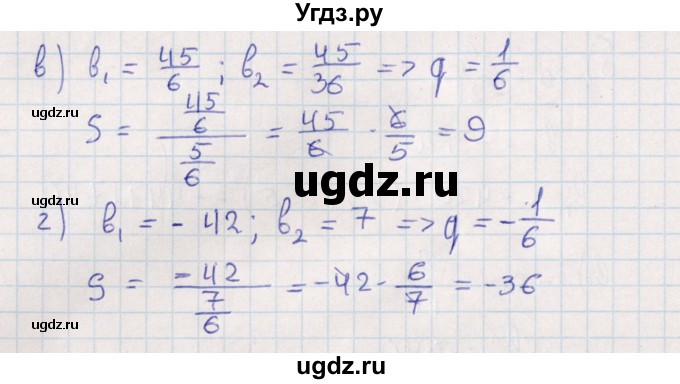 Угдз.ру
в) b₁ = 45/6 ; b₂ = 45/36 => q = 1/6
gdz.ru
S = (45/6)/(5/6) = 45/6 · 6/5 = 9
ugdz.ru
ugdz.ru
ugdz.ru
г) b₁ = - 42; b₂ = 7 => q = -1/6
ugdz.ru
S = -42/(7/6) = -42 · 6/7 = -36
ugdz.ru
ugdz.ru
ugdz.ru